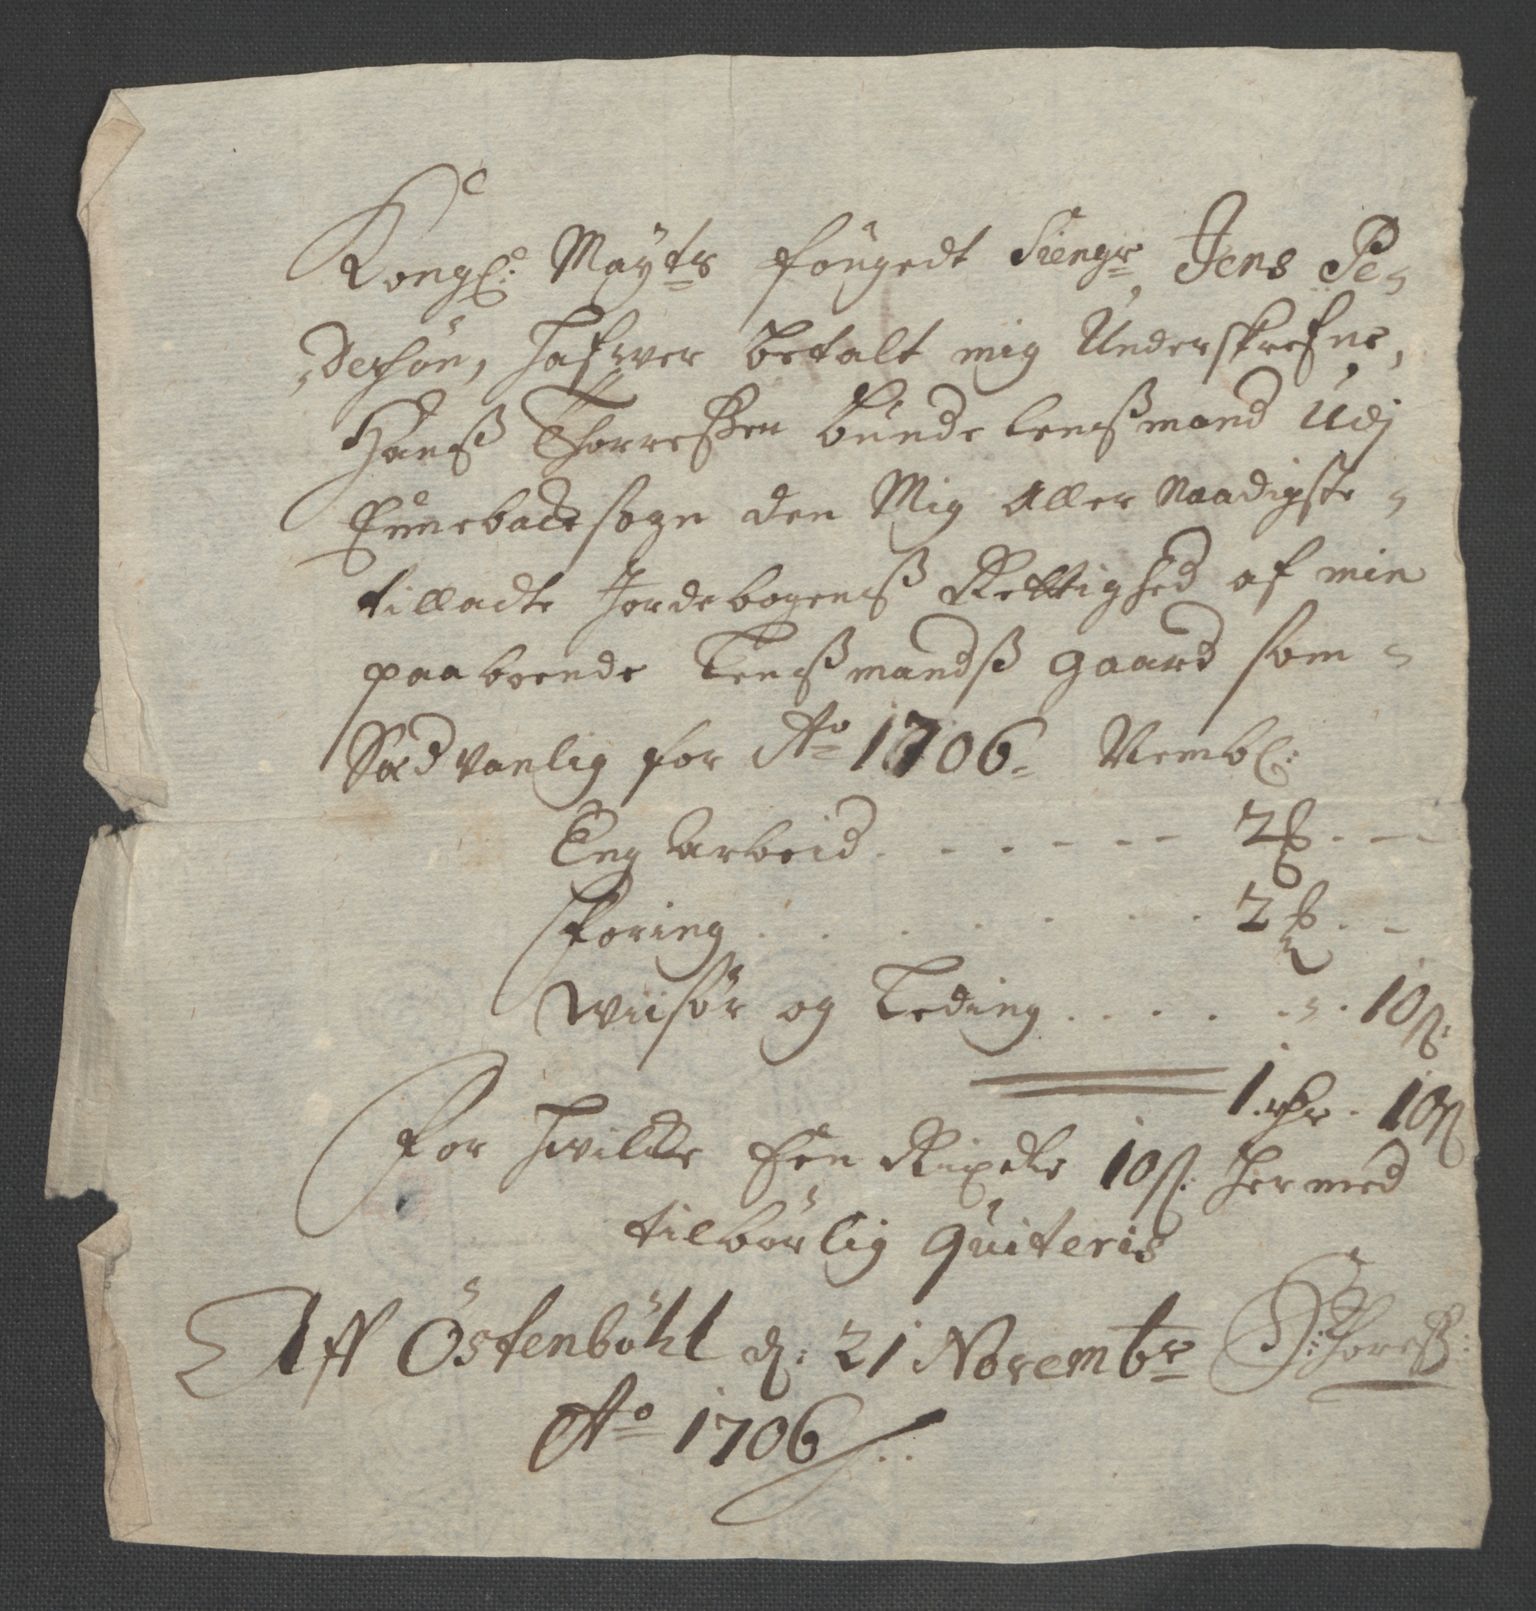 Kongl: Mayts fougedt Siengr, Jens Pe-
dersøn, hafwer betalt mig Underskrefne,
Hanß Thorreßen bunde lenßmand Udj
Ennebachsogn den Mig Aller Naadigste -
tilladte Jordebogenß Rettighed af min
paaboende Lenßmandß gaard som -
Sædvanlig for Ao 1706. Nembl:
Eng Arbeid . . . . - - - 2 ß . - -
foring . . . . . . . 2 ß . -
Wiisør og Leding . . . . . - . 10 ß:
1 rdr . 10 ß
For hvilke Een Rixdlr 10 ß: hermed
tilbørlig quiteris
Aff Östenbøhl d: 21 Novembr H: Thoreß:
Ao 1706